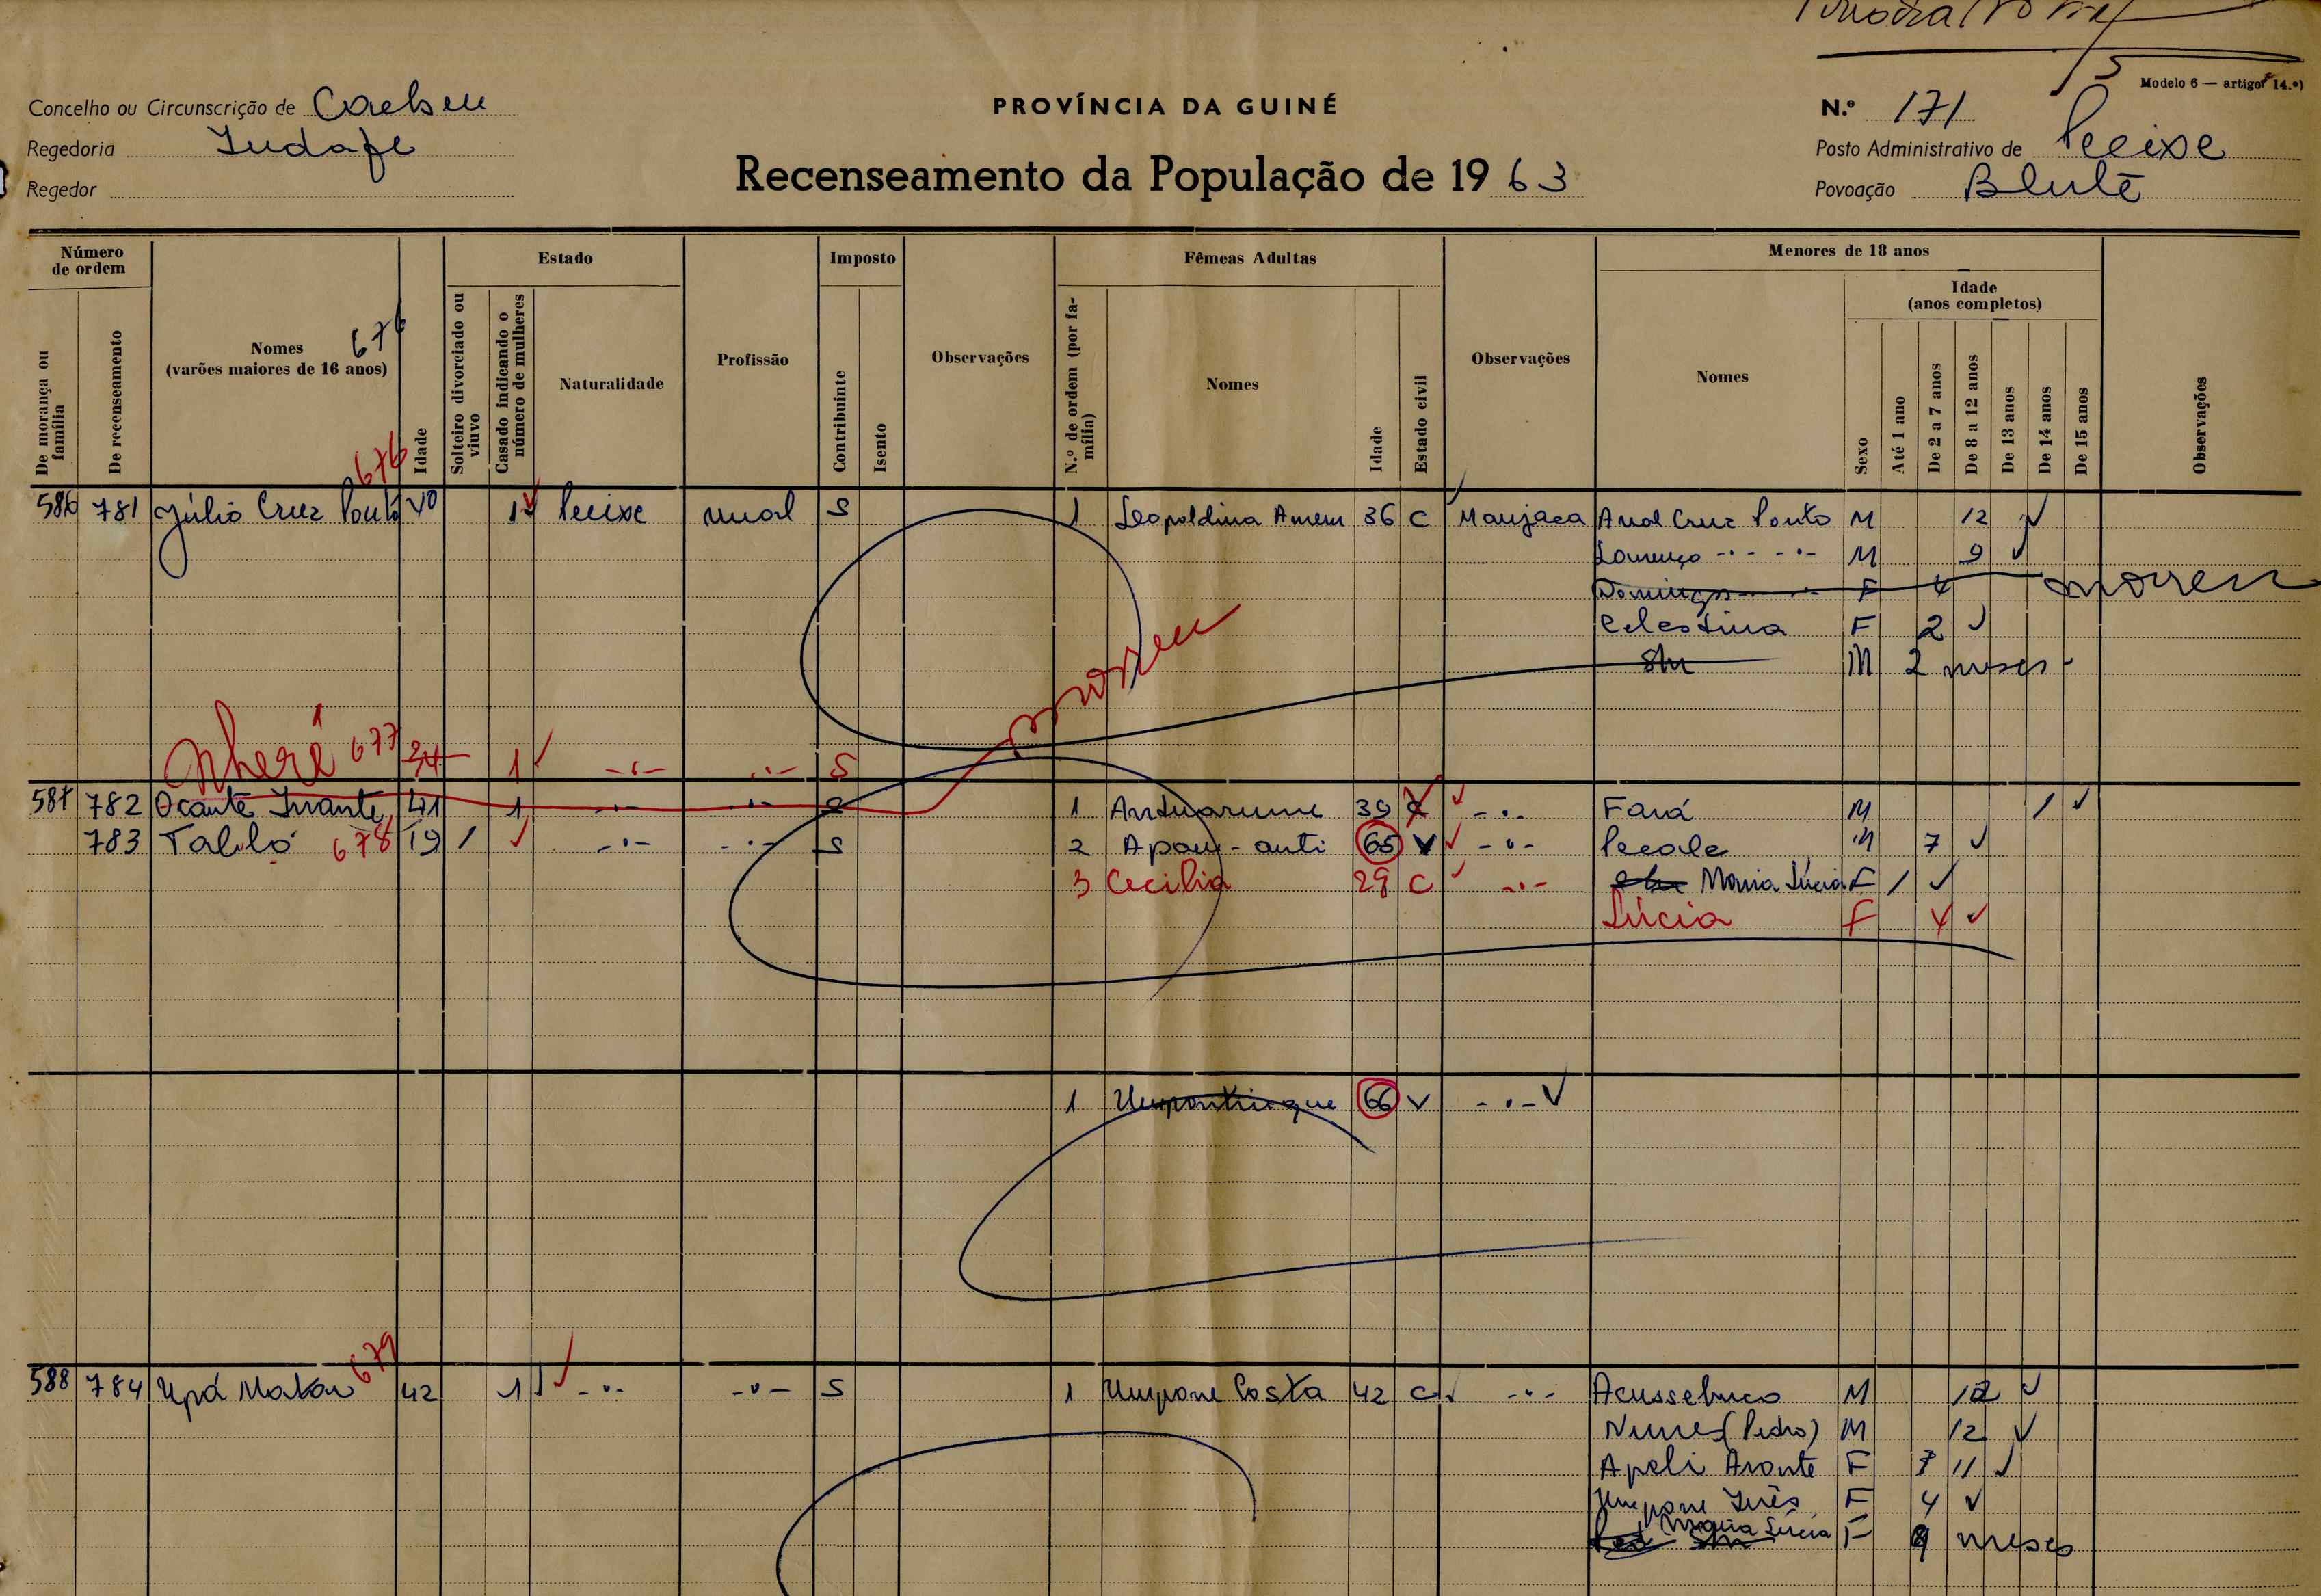 Modelo 6 — artigo 14.º)
Concelho ou Circunscrição de Cacheu
PROVÍNCIA DA GUINÉ
N.º 171
Regedoria Indafe
Recenseamento da População de 1963
Posto Administrativo de Pecixe
Regedor
Povoação
Número de ordem
Estado
Imposto
Fêmeas Adultas
Menores de 18 anos
Idade (anos completos)
De morança ou família
De recenseamento
Nomes (varões maiores de 16 anos) 676 676
Idade
Solteiro divorciado ou viuvo
Casado indicando o número de mulheres
Naturalidade
Profissão
Contribuinte
Isento
Observações
N.º de ordem (por família)
Nomes
Idade
Estado civil
Observações
Nomes
Sexo
Até 1 ano
De 2 a 7 anos
De 8 a 12 anos
De 13 anos
De 14 anos
De 15 anos
Observações
586 781 Júlio Cruz Pouto 40 1 Pecixe rural S 1 Leopoldina 36 C Manjaca Cruz Pouto M 12
Lourenço -·- -·- M 9
Domingos F 4 morreu
Celestina F 2
M 2 meses
677 34 1 -·- -·- S morreu
587 782 Ocante 41 1 -·- -·- S 1 39 C -·- Fará M /
783 678 19 / -·- -·- S 2 65 V -·- Pecole M 7
3 Cecilia 29 C -·- Maria Lúcia F /
Lúcia F 4
1 66 V -·-
588 784 679 42 1 -·- -·- S 1 Umpane Costa 42 C -·- M 12
Nunes (Pedro) M 12
Apeli F 7 11
Umpane Inês F 4
Maria Lúcia F 9 meses